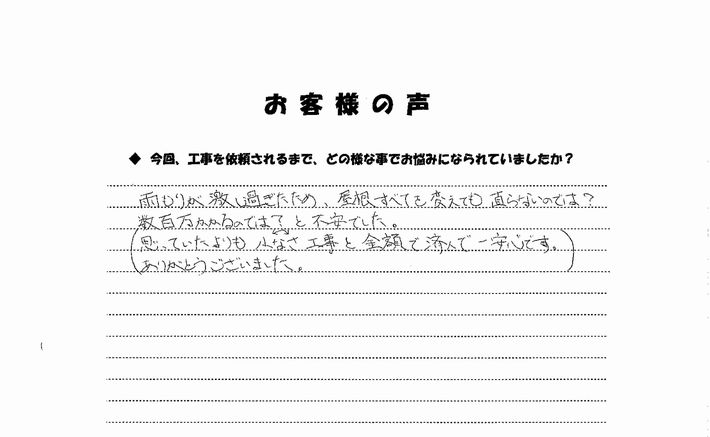 お客様の声
◆ 今回、工事を依頼されるまで、どの様な事でお悩みになられていましたか?
雨もりが激し過ぎたため、屋根すべてを変えても直らないのでは?
数百万かかるのでは?と不安でした。
(思っていたよりも小さな工事と金額で済んで一安心です。
ありがとうございました。)